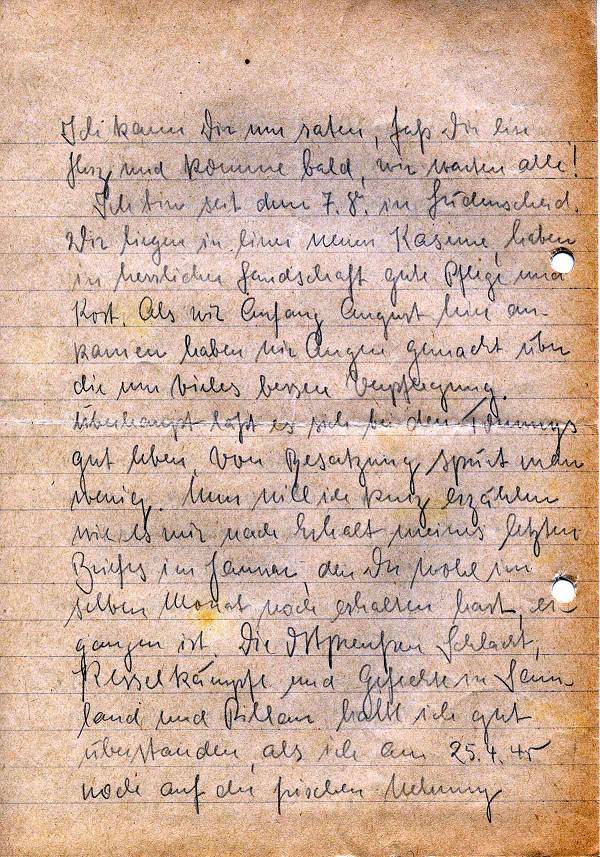 Ich kann Dir nur raten, faß Dir ein
Herz und komme bald, wir warten alle!
Ich bin seit dem 7.8. in Lüdenscheid.
Wir liegen in einer neuen Kaserne, haben
in herrlicher Landschaft gute Pflege und
Kost. Als wir Anfang August hier an-
kamen haben wir Augen gemacht über
die um vieles bessere Verpflegung.
Überhaupt läßt es sich bei den Tommys
gut leben, von Besatzung spürt man
wenig. Nun will ich kurz erzählen
wie es mir nach Erhalt meines letzten
Briefes im Januar, den Du wohl im
selben Monat noch erhalten hast, er-
gangen ist. Die Ostpreußen Schlacht,
Kesselkämpfe und Gefechte in Sam-
land und Pillau hatte ich gut
überstanden, als ich am 25.4.45
noch auf der frischen Nehrung